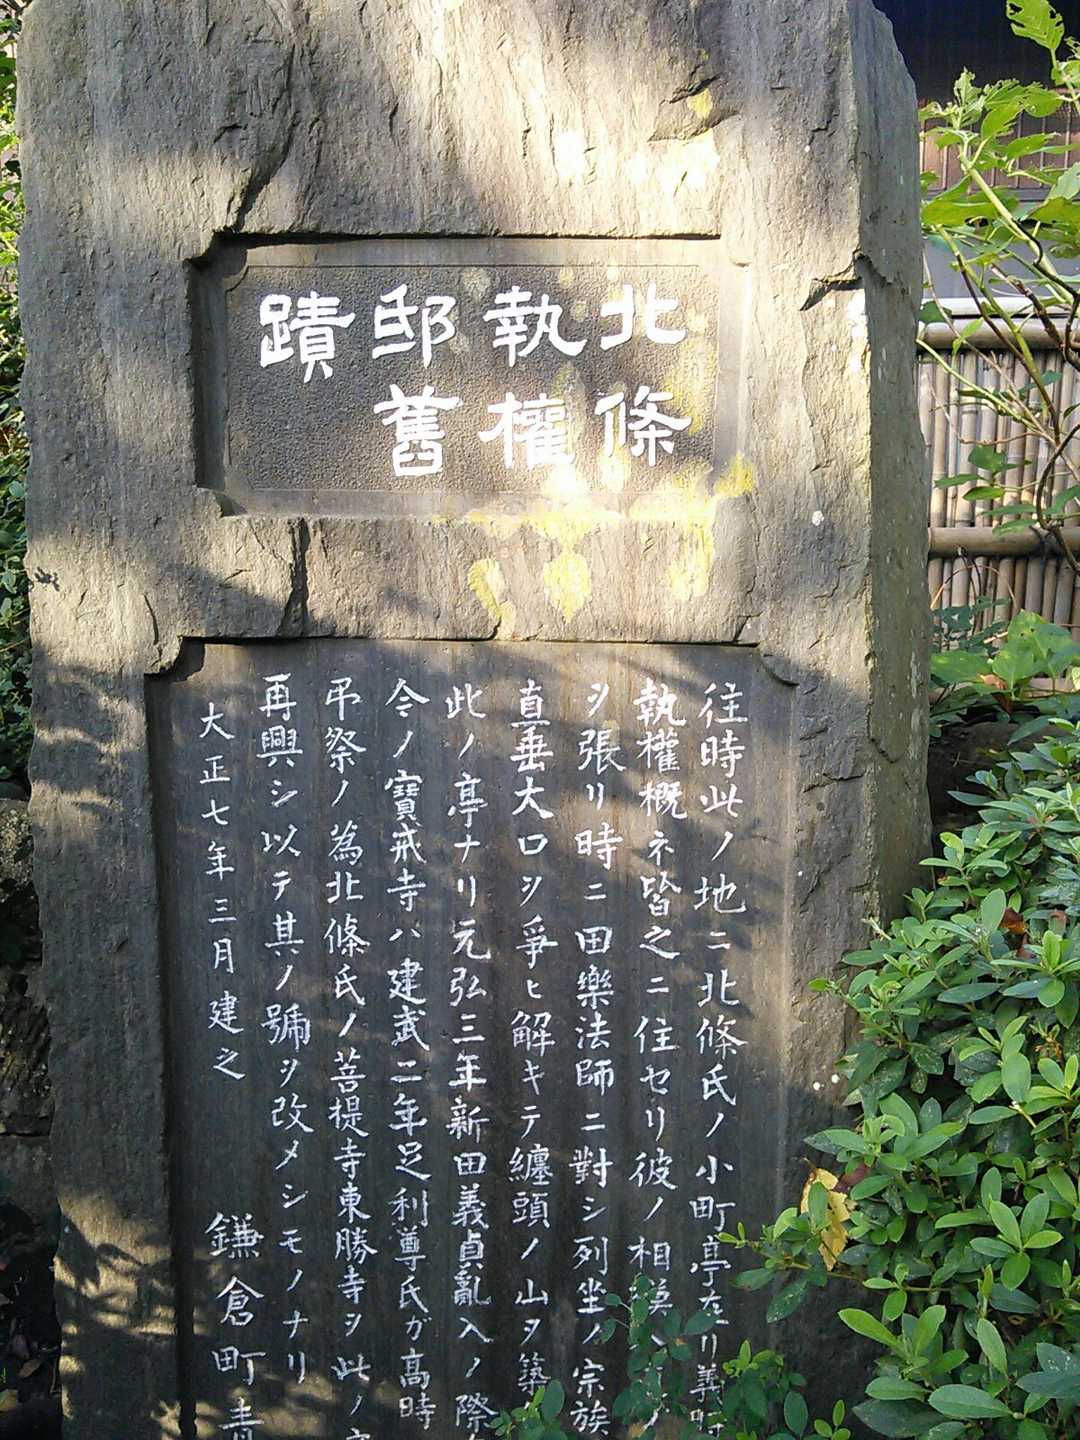 北條
執權
邸舊
蹟
往時此ノ地ニ北條氏ノ小町亭在リ義時
執權概ネ皆之ニ住セリ彼ノ相模入
ヲ張リ時ニ田樂法師ニ對シ列坐ノ宗族
直垂大口ヲ爭ヒ解キテ纏頭ノ山ヲ築
此ノ亭ナリ元弘三年新田義貞亂入ノ際
今ノ寶戒寺ハ建武二年足利尊氏ガ高時
弔祭ノ為北條氏ノ菩提寺東勝寺ヲ此ノ
再興シ以テ其ノ號ヲ改メシモノナリ
大正七年三月建之 鎌倉町青